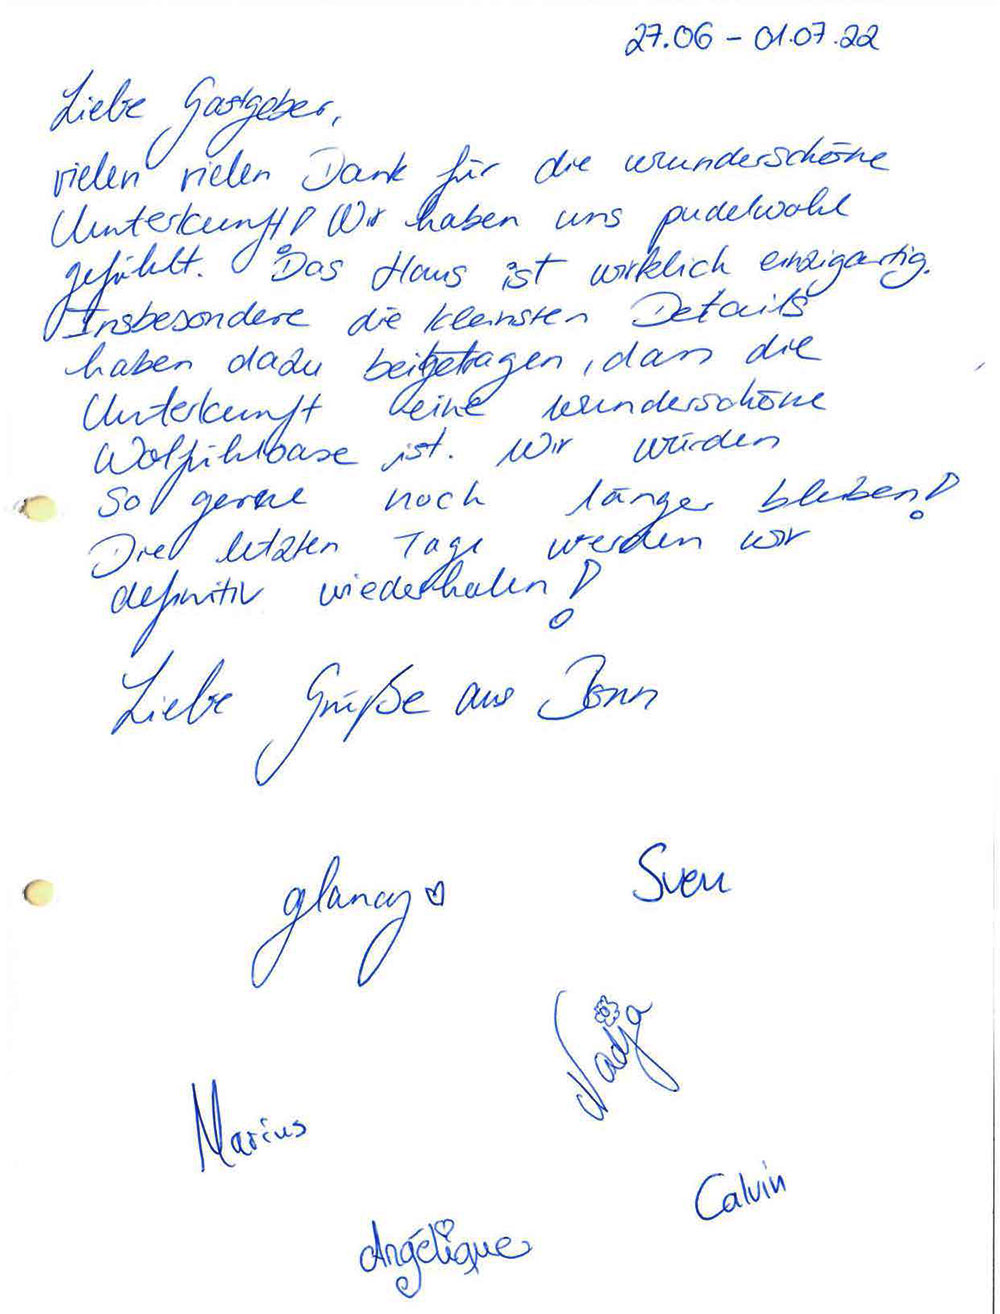 27.06 – 01.07.22
Liebe Gastgeber,
vielen vielen Dank für die wunderschöne
Unterkunft! Wir haben uns pudelwohl
gefühlt. Das Haus ist wirklich einzigartig.
Insbesondere die kleinsten Details
haben dazu beigetragen, dass die
Unterkunft eine wunderschöne
Wolfühloase ist. Wir würden
so gerne noch länger bleiben!
Die letzten Tage werden wir
definitiv wiederholen!
Liebe Grüße aus Bonn
Sven
Nadja
Marius
Calvin
Angélique